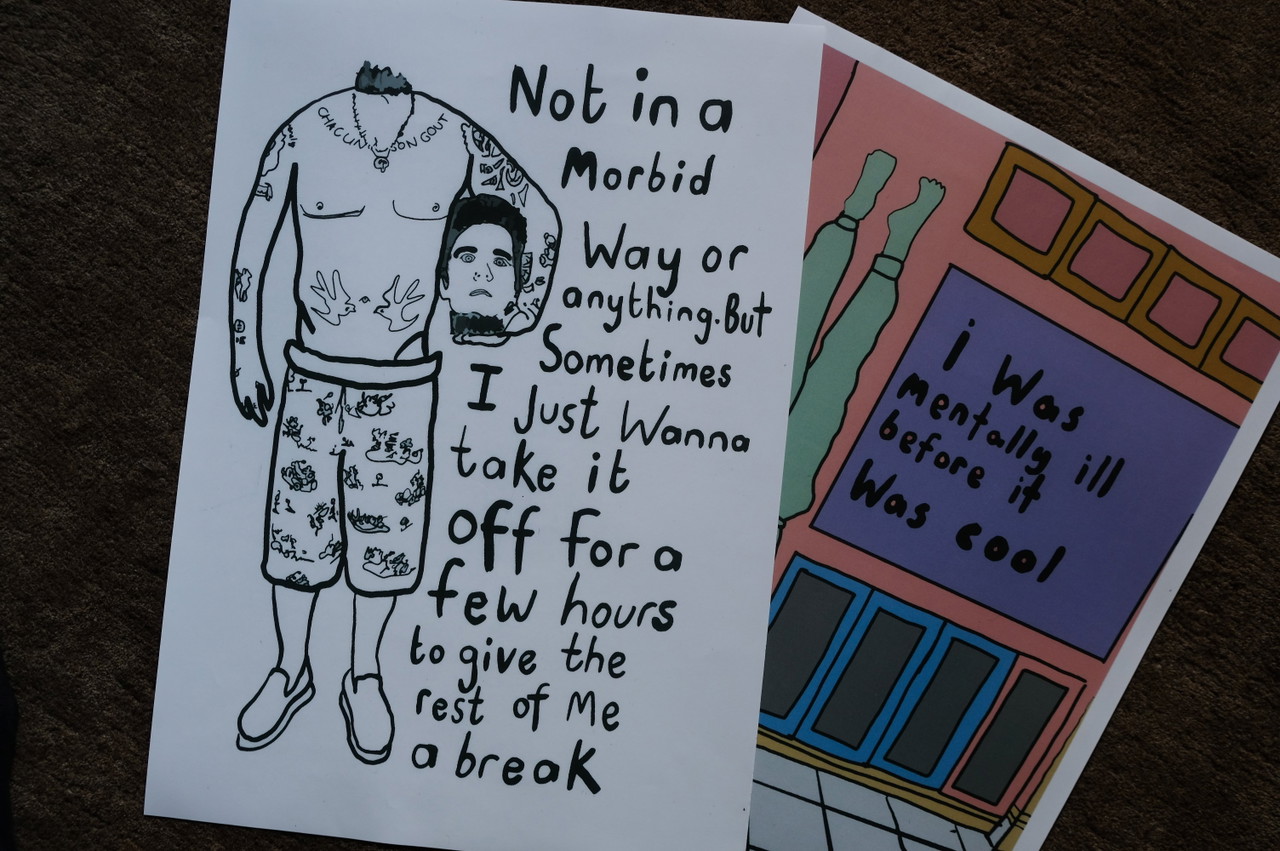 CHACUN SON GOUT
Not in a
Morbid
Way or
anything. But
Sometimes
I Just Wanna
take it
off for a
few hours
to give the
rest of Me
a break
i Was
mentally ill
before it
Was cool